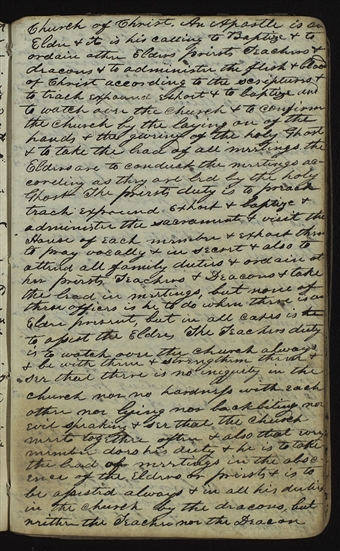 Church of Christ. An Apostle is an
Elder & it is his calling to Baptize & to
ordain other Elders priests Teachers &
deacons & to administer the flesh & blood
of Christ according to the scriptures &
to teach expound exhort & to baptize and
to watch over the Church & to confirm
the Church by the laying on of the
hands & the giveing of the holy Ghost
& to take the lead of all meetings. the
Elders are to conduct the meetings ac-
cording as they are led by the holy
Ghost. The priests duty is to preach
teach expound Exhort & baptize &
administer the sacrament & visit the
House of each member & exhort them
to pray vocally & in secret & also to
attend all family duties & ordain ot
her priests Teachers & Deacons & take
the lead in meetings, but none of
these officers is to do when there is an
Elder present, but in all cases is
to assist the Elder. The Teachers duty
is to watch over the church always
& be with them & strengthen them &
see that there is no iniquity in the
church nor no hardness with each
other nor lying nor backbiting nor
evil speaking & see that the church
meets together often & also that every
member does his duty & he is to take
the lead of meetings in the abse
ence of the Elders or priests & is to
be assisted always & in all his duties
in the church by the deacons, but
neither the Teachers nor the Deacon